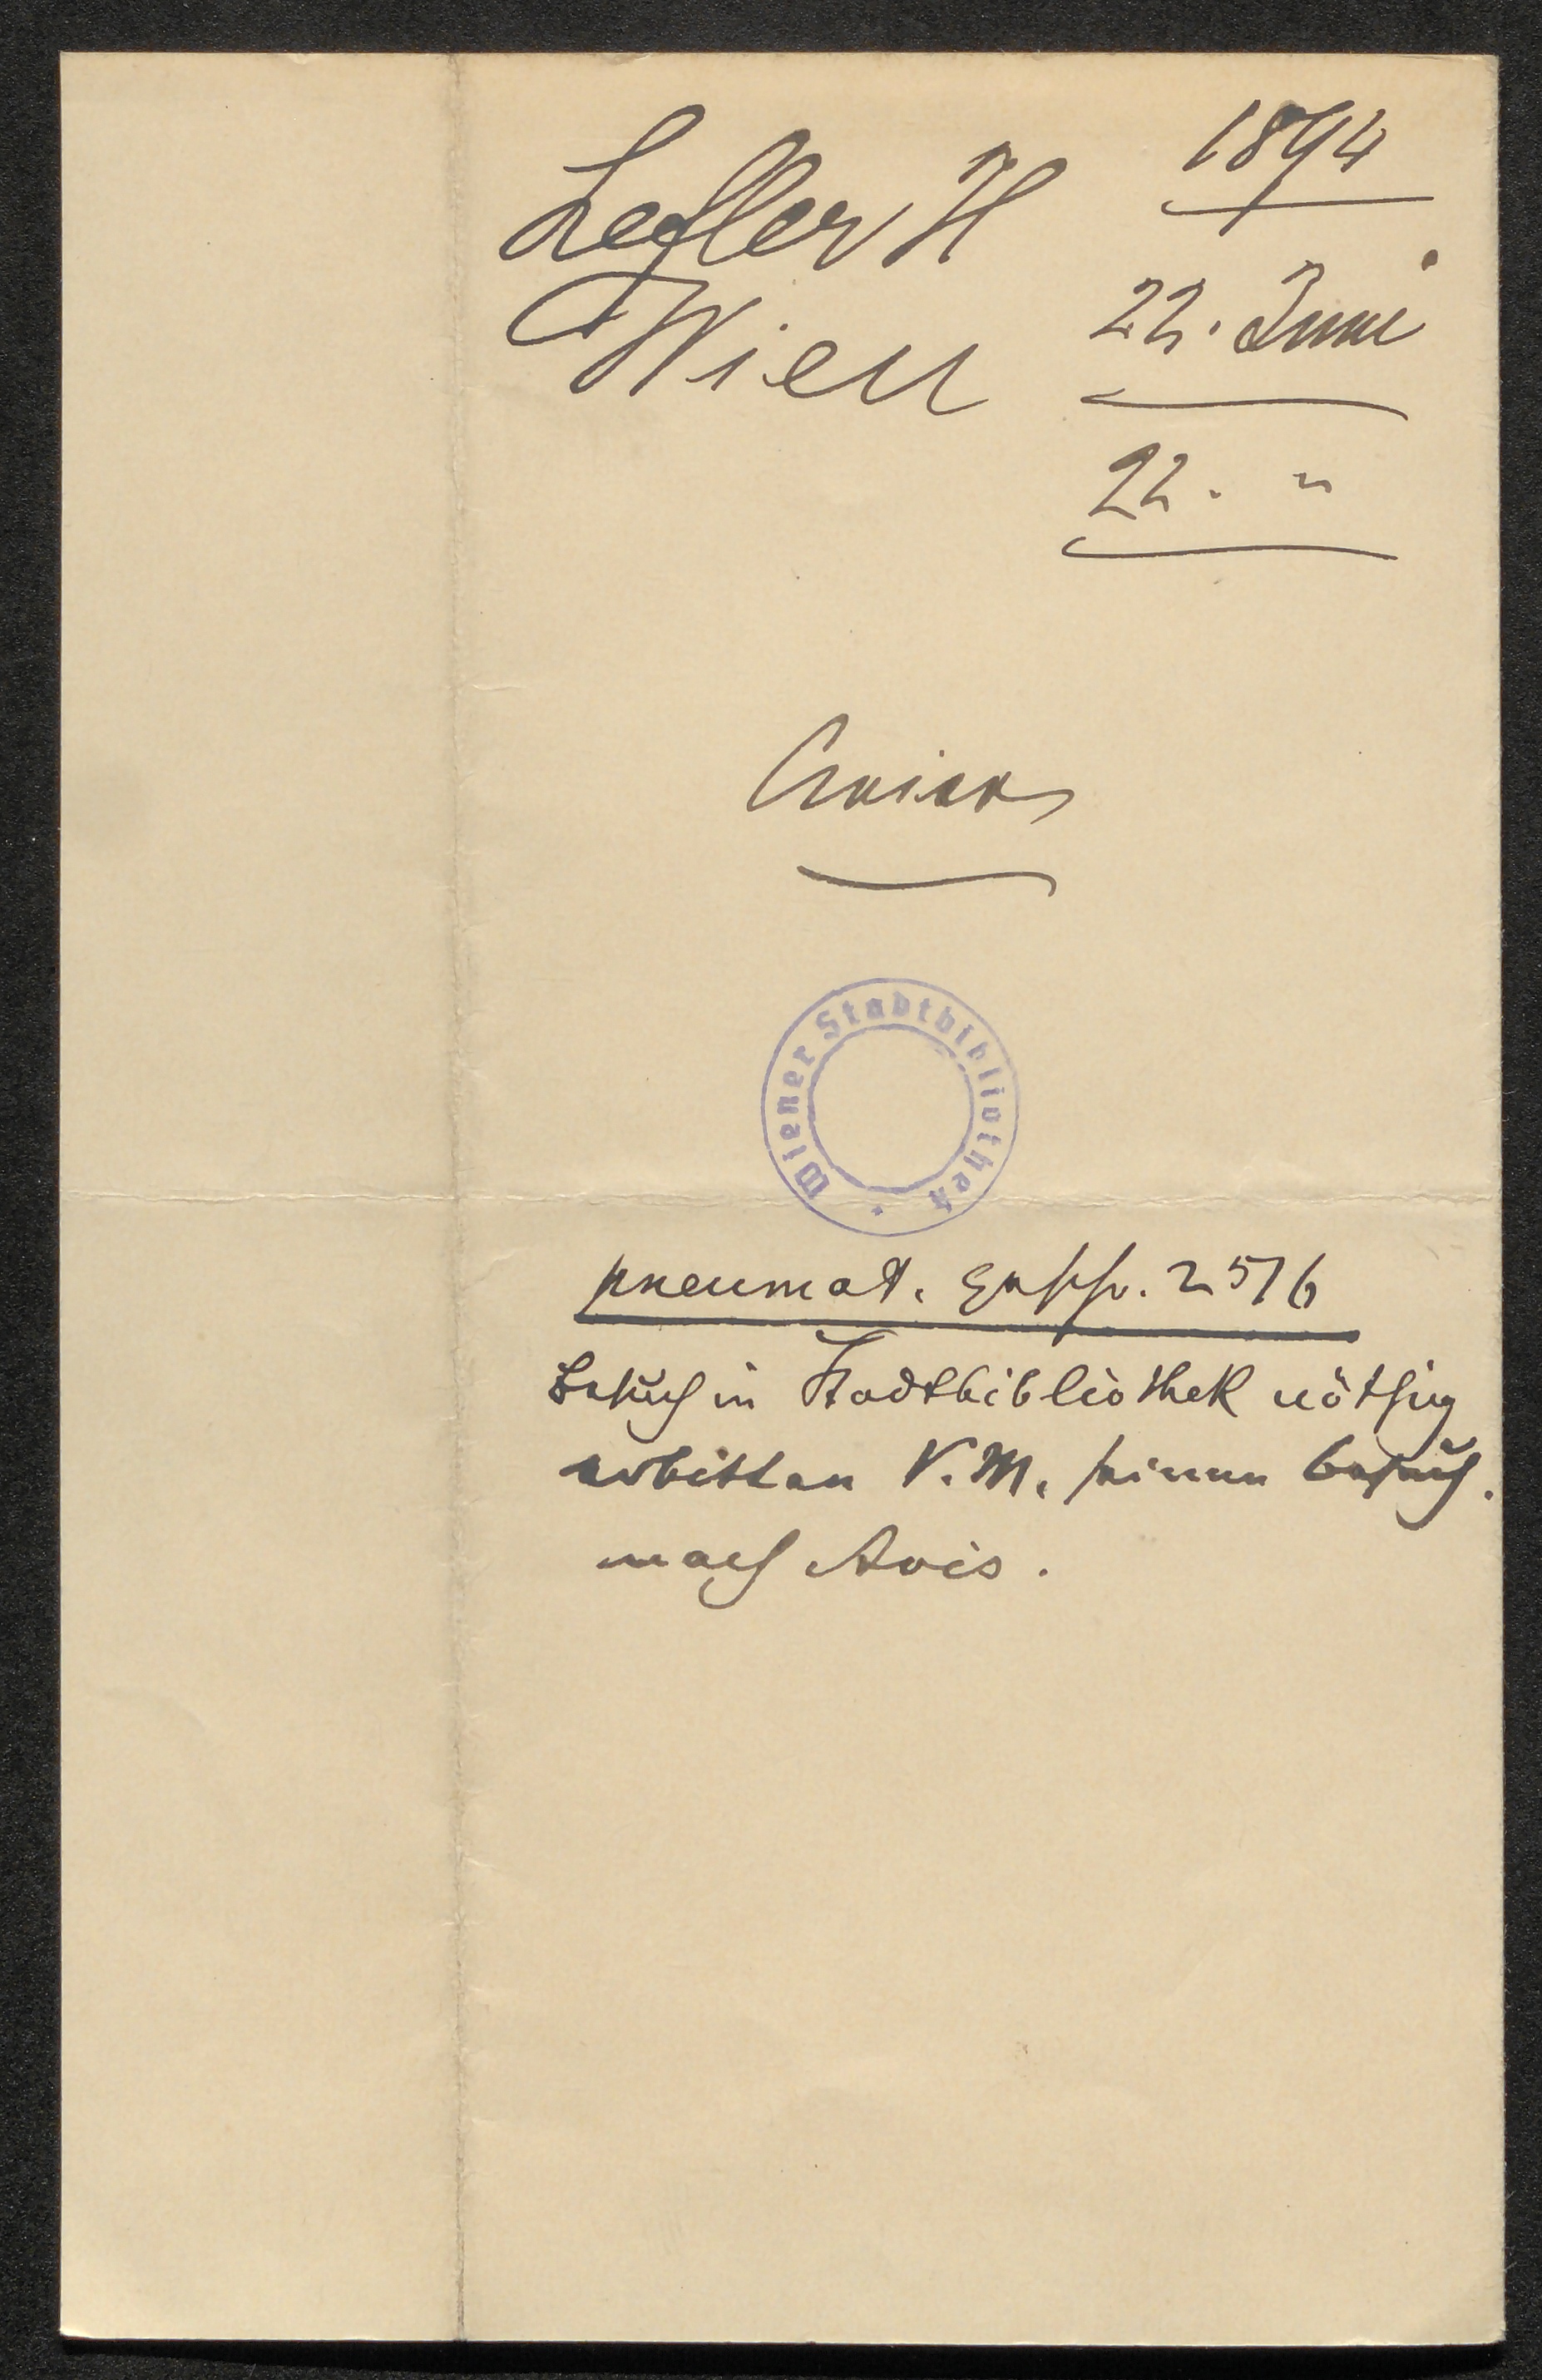 Lefler H 1894
Wien 22. Juni
22. "
Wiener Stadtbibliothek
pneumat. 25/6
Besuch in Stadtbibliothek nöthig
erbitten V. M. seinen Besuch.
nach Avis.